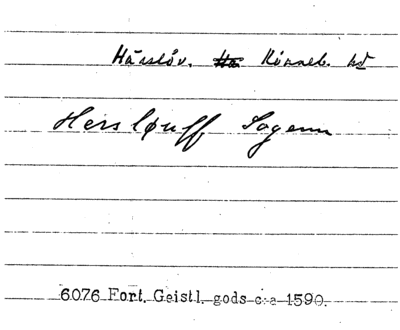 Härslöv. Rönneb. hd
Hersløuff Sogenn
6076 Fort. Geistl. gods c:a 1590.